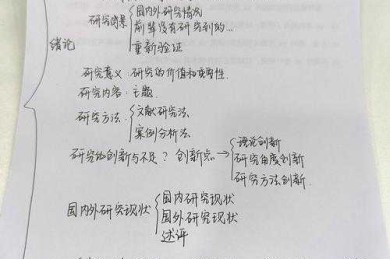 国内外研究情况
研究背景 前辈没有研究到的...
重新验证
绪论
研究意义:研究的价值和重要性.
研究内容:主题.
研究方法: 文献研究法
案例分析法.
研究的创新与不足? 创新点→ 理论创新
研究角度创新
研究方法创新.
国内外研究现状 国内研究现状
国外研究现状
述评